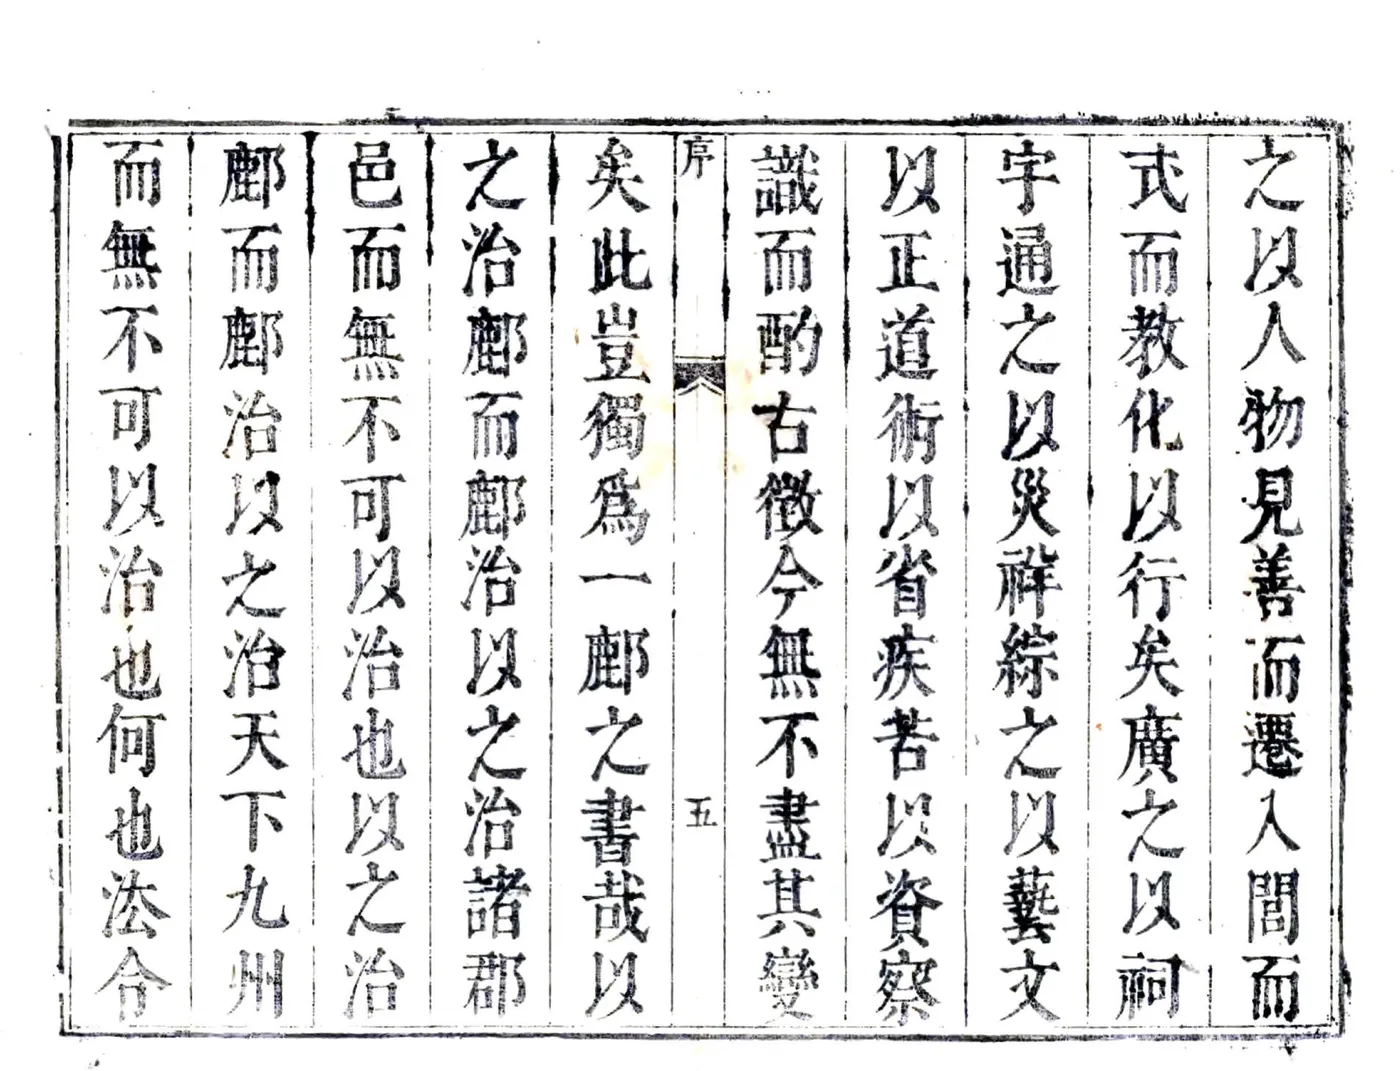 之以人物見善而遷入閭而
式而教化以行矣廣之以祠
字通之以災祥綜之以藝文
以正道術以省疾苦以資察
識而酌古徵今無不盡其變
序
五
矣此豈獨爲一鄜之書哉以
之治鄜而鄜治以之治諸郡
邑而無不可以治也以之治
鄜而鄜治以之治天下九州
而無不可以治也何也法令